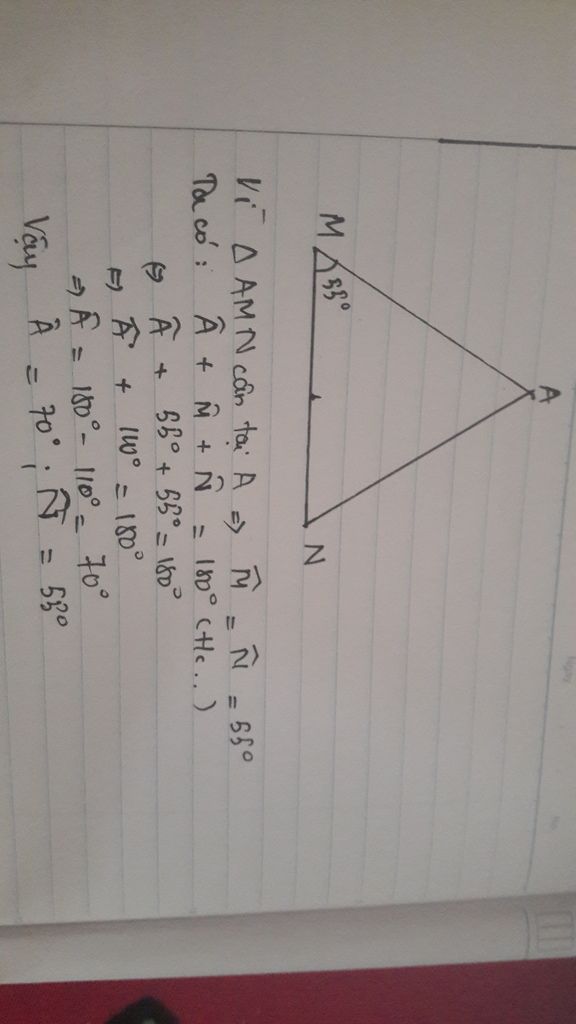 A
M
55°
N
Vì Δ AMN cân tại A => M̂ = N̂ = 55°
Ta có: Â + M̂ + N̂ = 180° (Hc...)
<=> Â + 55° + 55° = 180°
<=> Â + 110° = 180°
=> Â = 180° - 110° = 70°
Vậy Â = 70°, N̂ = 55°